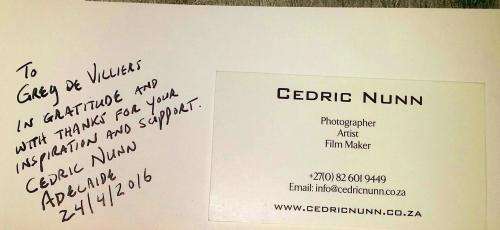 To
GREG DE VILLIERS
IN GRATITUDE AND
WITH THANKS FOR YOUR
INSPIRATION AND SUPPORT.
CEDRIC NUNN
ADELAIDE
24/4/2016
CEDRIC NUNN
Photographer
Artist
Film Maker
+27(0) 82 601 9449
Email: info@cedricnunn.co.za
WWW.CEDRICNUNN.CO.ZA